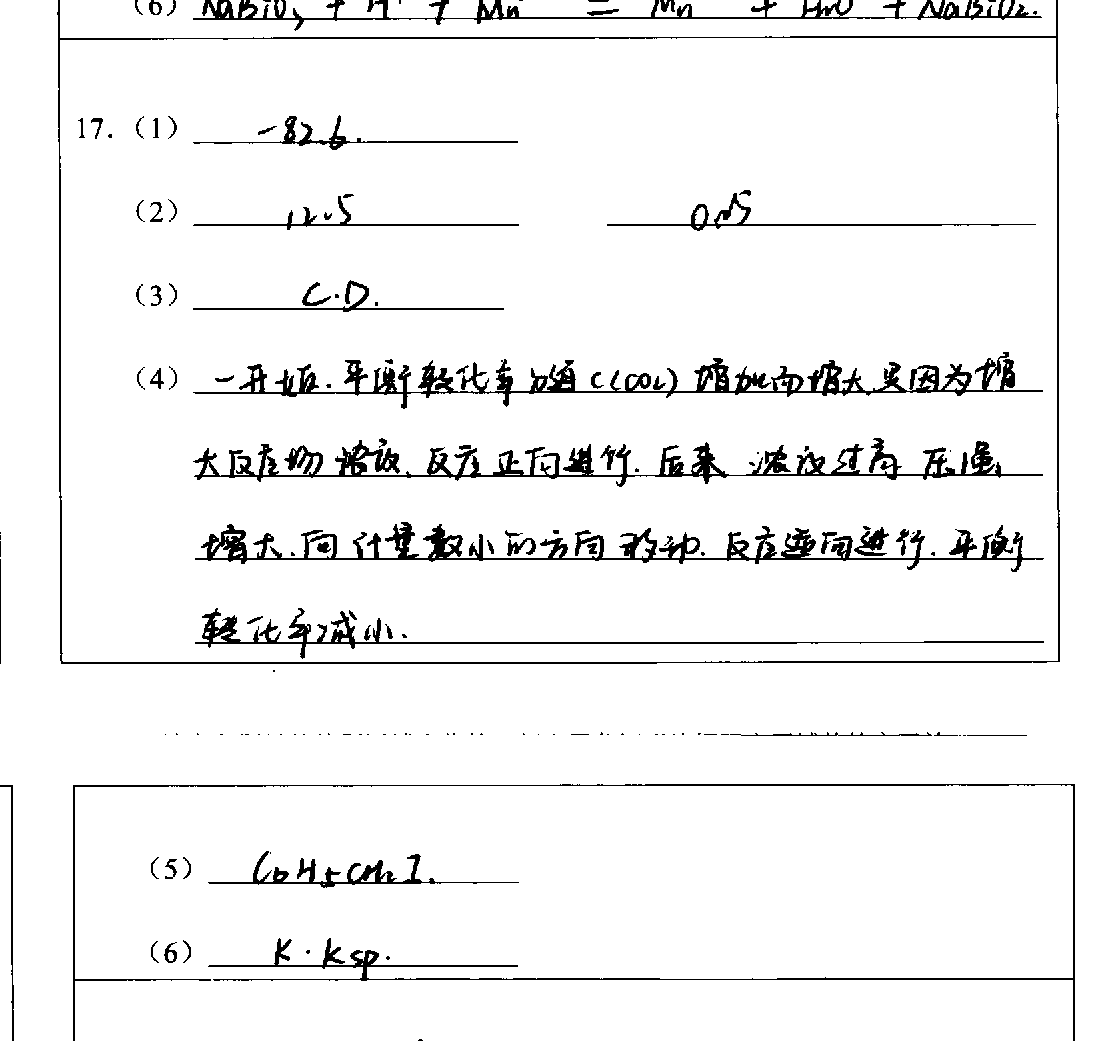 (6) NaBiO₃ + H⁺ + Mn = Mn + H₂O + NaBiO₂.
17. (1) -82.6.
(2) 12.5 0.25
(3) C.D.
(4) 一开始.平衡转化率随 c(CO₂) 增加而增大,是因为增
大反应物浓度,反应正向进行.后来 浓度过高 压强
增大.向计量数小的方向移动.反应逆向进行.平衡
转化率减小.
(5) C₆H₅CH₂I.
(6) K·Ksp.